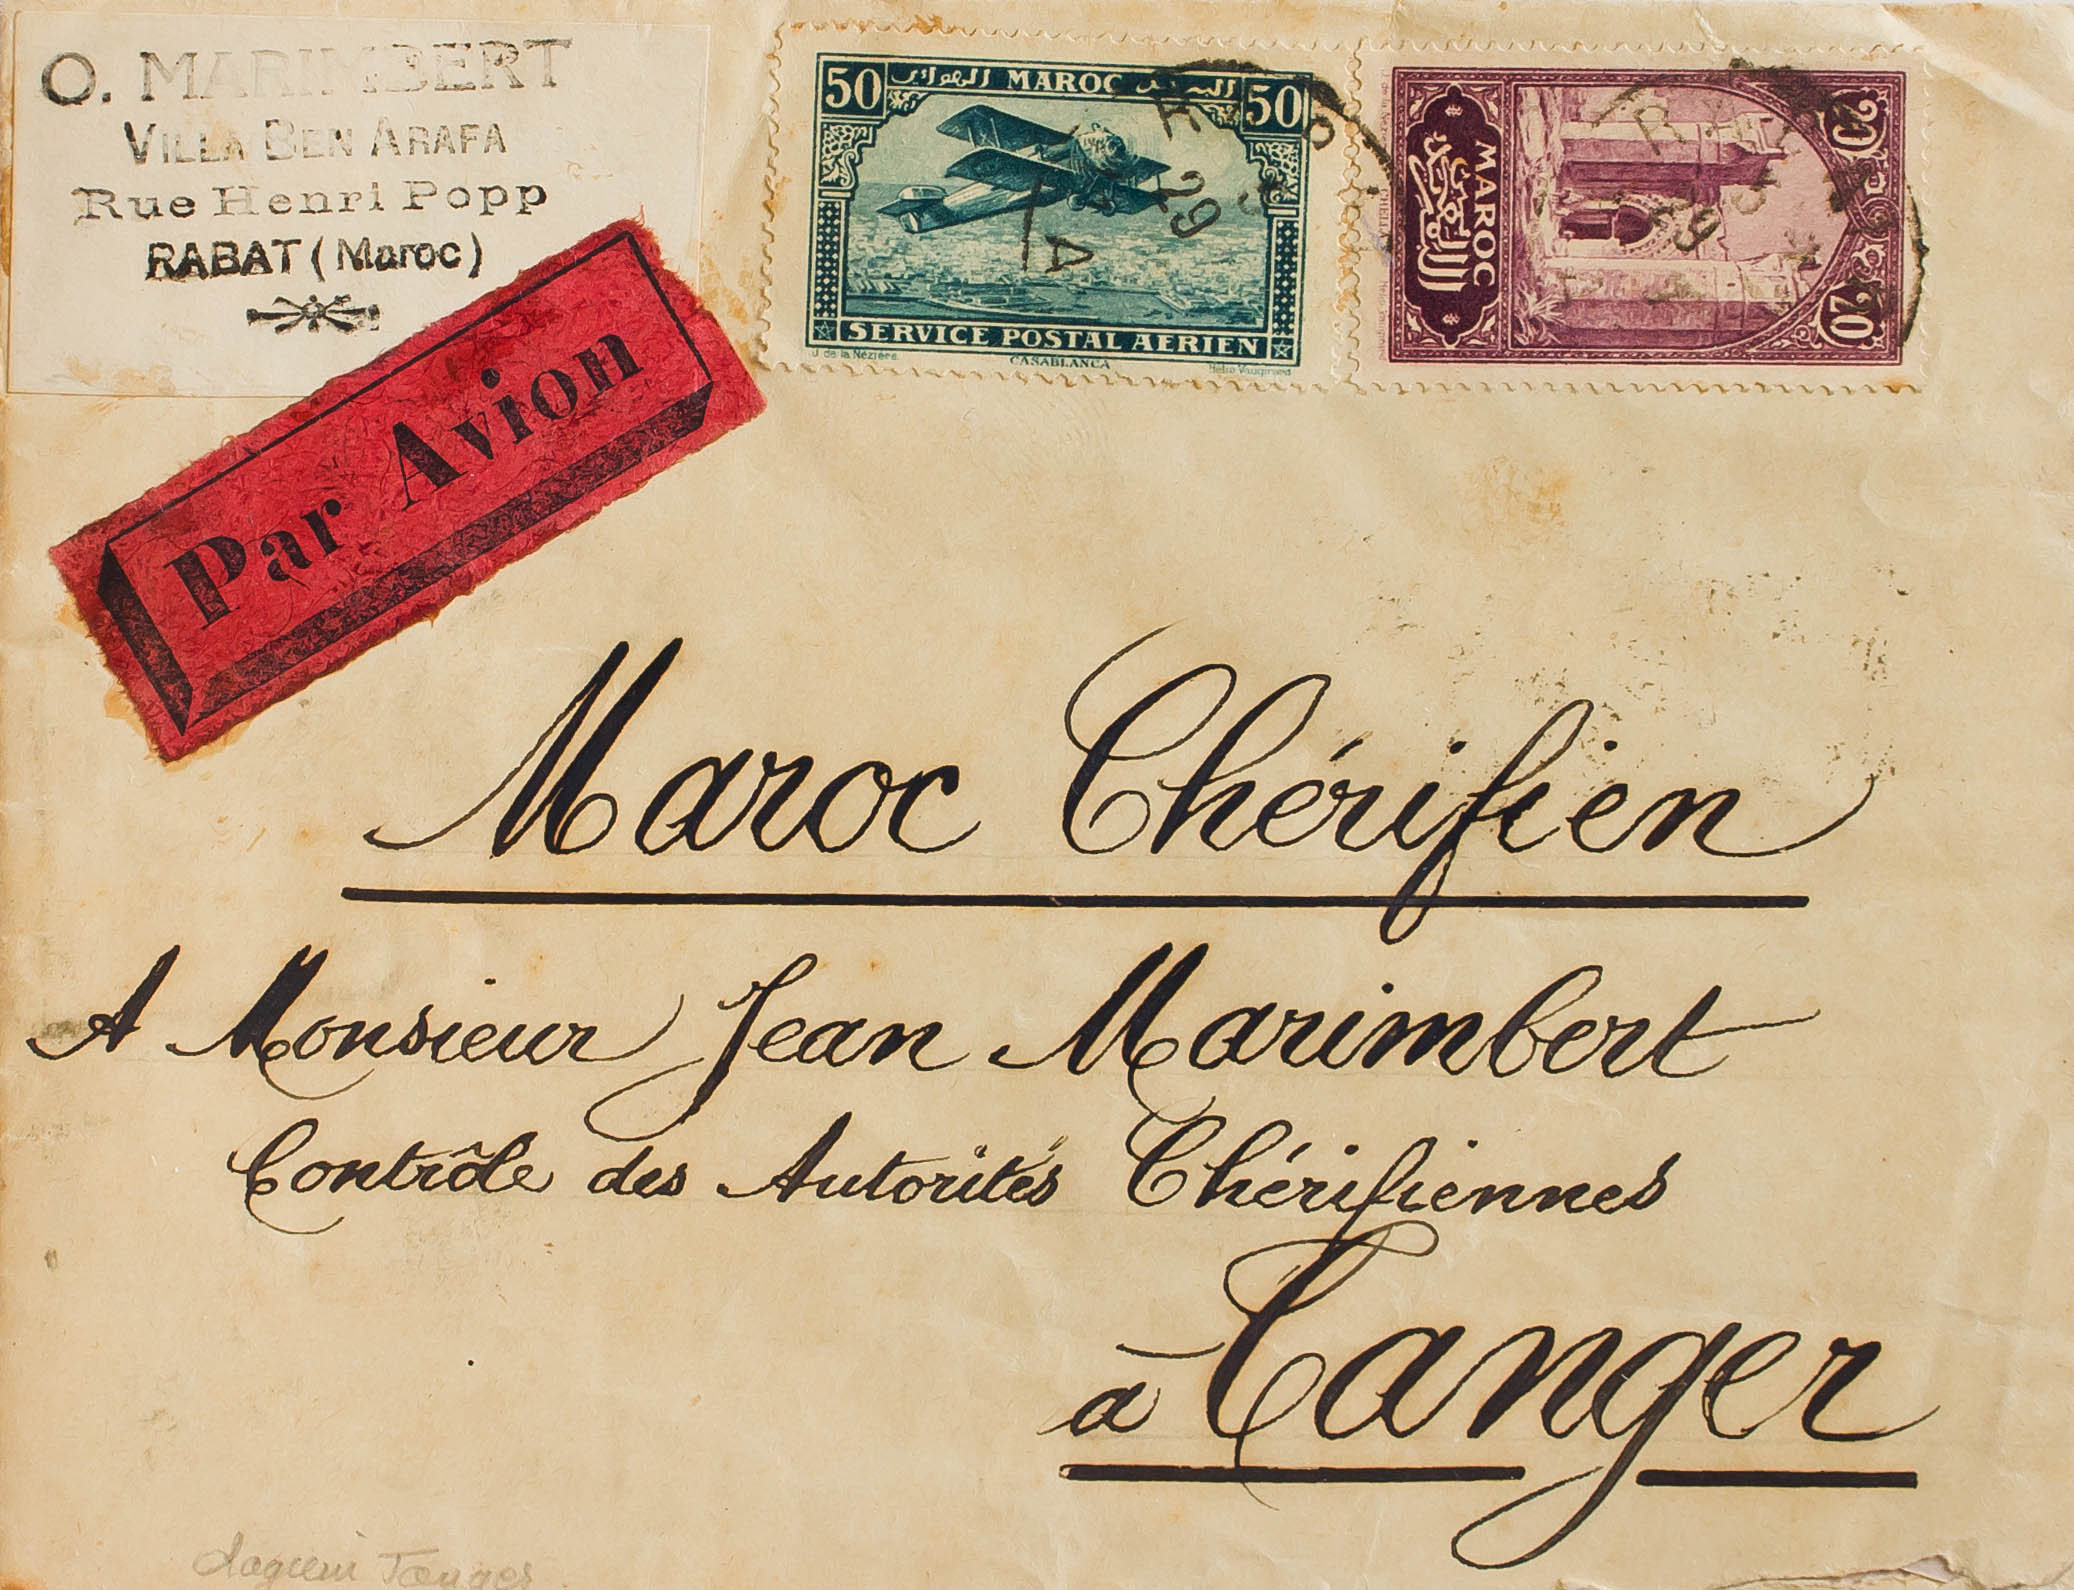 O. MARIMBERT
VILLA BEN ARAFA
Rue Henri Popp
RABAT (Maroc)
Par Avion
50 البريد الهوائي MAROC 50
SERVICE POSTAL AERIEN
J. de la Nézière. CASABLANCA Hélio Vaugirard
20 MAROC 20
29
29
Maroc Chérifien
A Monsieur Jean Marimbert
Contrôle des Autorités Chérifiennes
à Tanger